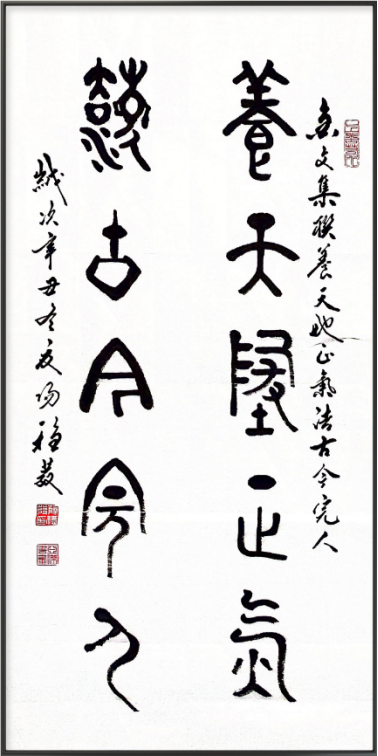 金文集聯養天地正氣法古今完人
養天地正氣
法古今完人
歲次辛丑冬